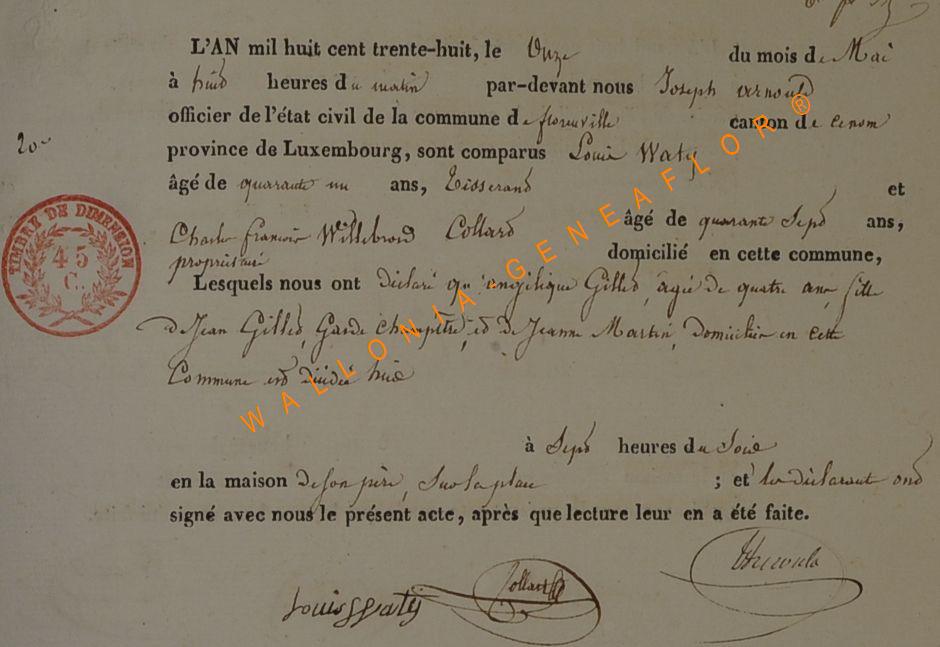 L'AN mil huit cent trente-huit, le Onze du mois de Mai
à huit heures du matin par-devant nous Joseph arnould
officier de l'état civil de la commune de florenville canton de
20
province de Luxembourg, sont comparus Louis Waty
âgé de quarante un ans, Tisserand et
Charles francois Willebrord Collard âgé de quarante Sept ans,
propriétaire domicilié en cette commune,
Lesquels nous ont déclaré qu'angélique Gilled, agée de quatre ans, fille
de Jean Gilled, Garde champêtre, et de Jeanne Martin, domiciliés en cette
Commune est décédée hier
à Sept heures du Soir
en la maison de son père, Sur la place ; et les déclarant ont
signé avec nous le présent acte, après que lecture leur en a été faite.
Louis Waty Collard
TIMBRE DE DIMENSION
45
C.
WALLONIA-GENEAFLOR®